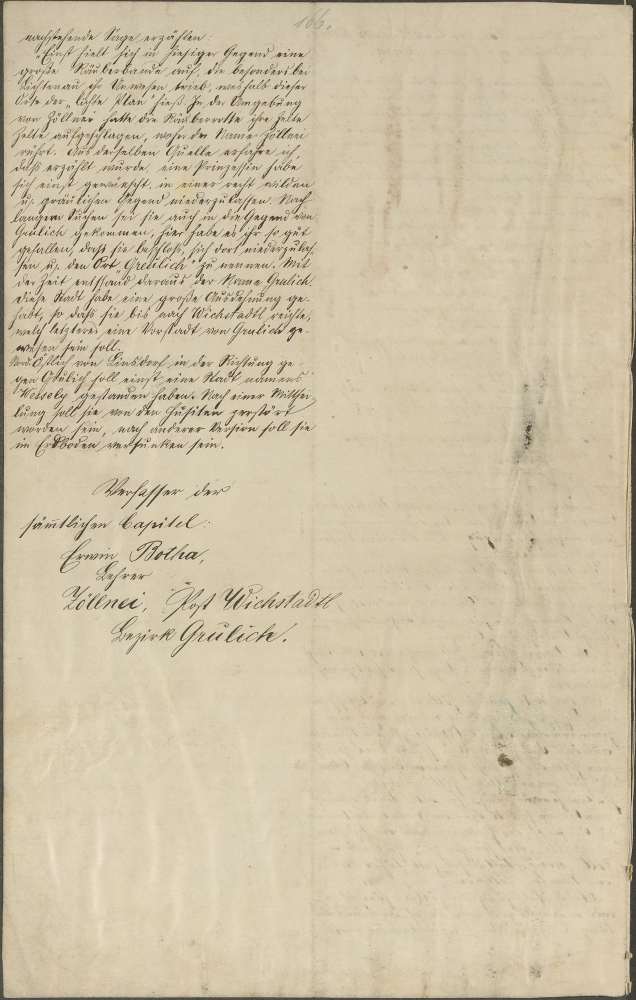 166.
nachstehende Sage erzählen:
„Einst hielt sich in hiesiger Gegend eine
große Räuberbande auf, die besonders bei
Lichtenau ihr Unwesen trieb, weshalb dieser
Ort der „lichte Plan" hieß. In der Umgebung
von Zöllnei hatte die Räuberrotte ihre
Zelte aufgeschlagen, woher der Name Zöllnei
rührt. Aus derselben Quelle erfahre ich,
daß erzählt wurde, eine Prinzessin habe
sich einst gewünscht, in einer recht wilden
u. gräulichen Gegend niederzulassen. Nach
langem Suchen sei sie auch in die Gegend von
Grulich gekommen, hier habe es ihr so gut
gefallen, daß sie beschloß, sich dort niederzulas-
sen u. den Ort „Greulich" zu nennen. Mit
der Zeit entstand daraus der Name Grulich.
Diese Stadt habe eine große Ausdehnung ge-
habt, so daß sie bis nach Wichstadtl reichte,
welch letzteres eine Vorstadt von Grulich ge-
wesen sein soll.
Östlich von Linsdorf in der Richtung ge-
gen Grulich soll einst eine Stadt namens
Wessely gestanden haben. Nach einer Mittei-
lung soll sie von den Husiten zerstört
worden sein, nach anderer Version soll sie
im Erdboden versunken sein.
Verfasser der
sämtlichen Capitel:
Erwin Botha,
Lehrer
Zöllnei, Post Wichstadtl
Bezirk Grulich.